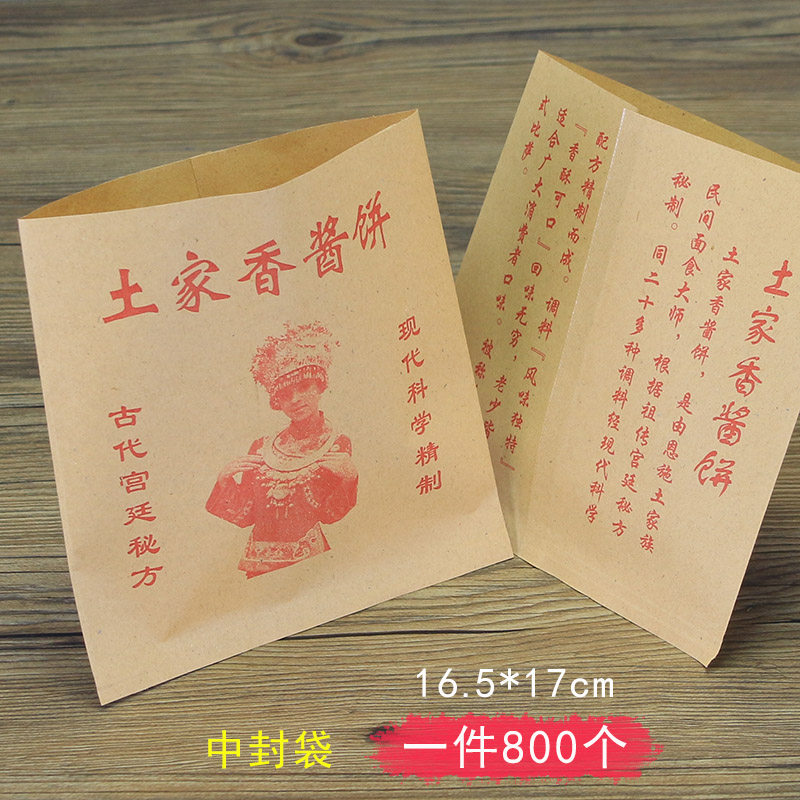 土家香酱饼
现代科学精制
古代宫廷秘方
土家香酱饼
土家香酱饼，是由恩施土家族
民间面食大师，根据祖传宫廷秘方
秘制。同二十多种调料经现代科学
配方精制而成。调料『风味独特』
『香酥可口』回味无穷，老少皆
适合广大消费者口味。被称
式比萨。
16.5*17cm
中封袋
一件800个